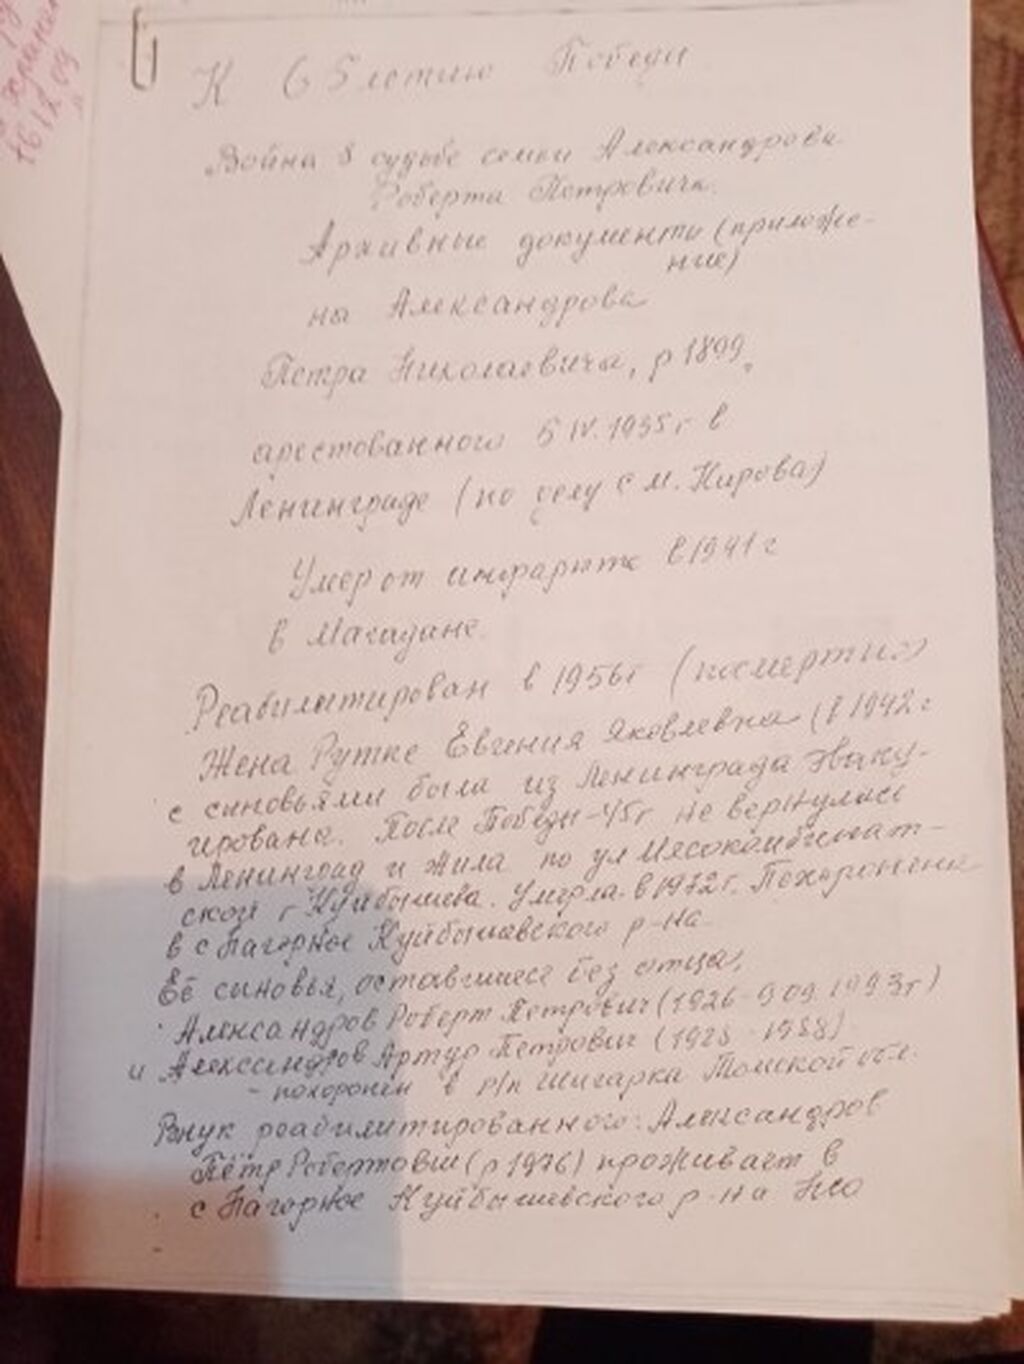 К 65летию Победы
Война в судьбе семьи Александрова
Роберта Петровича.
Архивные документы (приложе-
ние)
на Александрова
Петра Николаевича, р 1899,
арестованного 5 IV. 1935г в
Ленинграде (по делу С м. Кирова)
Умер от инфаркта в 1941 г
в Магадане.
Реабилитирован в 1956г (посмертно)
Жена Рутке Евгения Яковлевна (в 1942 г
с сыновьями была из Ленинграда эваку-
ирована. После Победы-45г не вернулась
в Ленинград и жила по ул Мясокомбинат-
ской г Куйбышева. Умерла в 1972 г. Похоронена
в с Нагорное Куйбышевского р-на.
Её сыновья, оставшиеся без отца,
Александров Роберт Петрович (1926- 9 09 1993г)
и Александров Артур Петрович (1928 - 1988)
- похоронен в р/п Шигарка Томской обл.
Внук реабилитированного: Александров
Пётр Робертович (р 1976) проживает в
с Нагорное Куйбышевского р-на Нсо